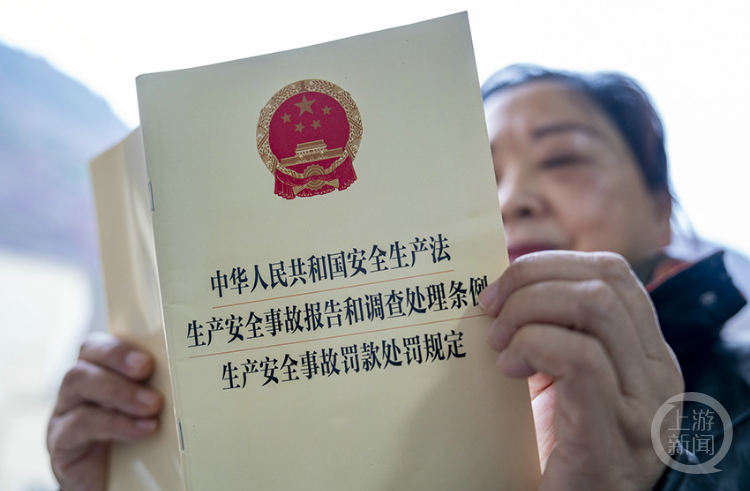 中华人民共和国安全生产法
生产安全事故报告和调查处理条例
生产安全事故罚款处罚规定
上游
新闻